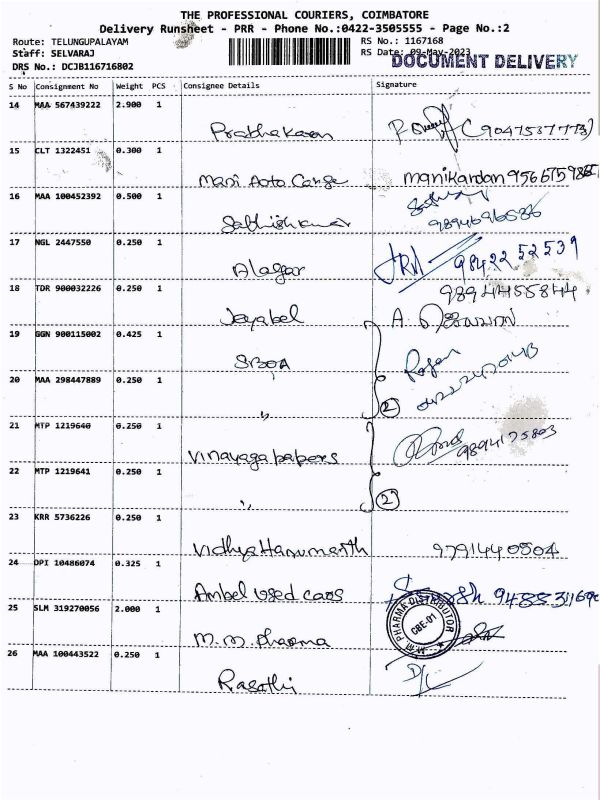 THE PROFESSIONAL COURIERS, COIMBATORE
Delivery Runsheet - PRR - Phone No.:0422-3505555 - Page No.:2
Route: TELUNGUPALAYAM RS No.: 1167168
Staff: SELVARAJ RS Date: 09-May-2023
DOCUMENT DELIVERY
DRS No.: DCJB116716802
S No Consignment No Weight PCS Consignee Details Signature
14 MAA 567439222 2.900 1
Prabhakaran (9047537773)
15 CLT 1322451 0.300 1
Mani Auto Garge manikandan
16 MAA 100452392 0.500 1
Sabhishkumar 9894696586
17 NGL 2447550 0.250 1
Alagar 98422 52539
18 TDR 900032226 0.250 1 9894455844
Jeyabel A
19 GGN 900115002 0.425 1
SBOA Rajan
20 MAA 298447889 0.250 1
" 2
21 MTP 1219640 0.250 1
Vinayaga papers 9894175803
22 MTP 1219641 0.250 1
" 2
23 KRR 5736226 0.250 1
Vidhya Hanumanth 9791440504
24 DPI 10486074 0.325 1
Ambel used cars
25 SLM 319270056 2.000 1
M.M. Pharma
M.M PHARMA DISTRIBUTOR
CBE-01
26 MAA 100443522 0.250 1
Rasathi D/L